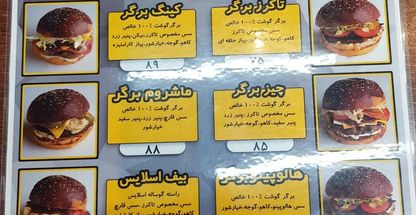 تاکرز برگر
برگر گوشت ۱۰۰٪ خالص
سس مخصوص تاکرز
کاهو، گوجه، خیارشور، پیاز حلقه ای
۷۵
کینگ برگر
برگر گوشت ۱۰۰٪ خالص
سس مخصوص تاکرز، بیکن، پنیر زرد
کاهو، گوجه، خیارشور، پیاز کاراملیزه
۸۹
چیز برگر
برگر گوشت ۱۰۰٪ خالص
سس مخصوص تاکرز، پنیر زرد
پنیر سفید، کاهو، گوجه، خیارشور
۸۵
ماشروم برگر
برگر گوشت ۱۰۰٪ خالص
سس قارچ، پنیر زرد، پنیر سفید
خیارشور
۸۸
برگر گوشت ۱۰۰٪ خالص
سس مخصوص تاکرز، پنیر زرد
سس هالوپینو، کاهو، گوجه، خیارشور
بیف اسلایس
راسته گوساله اسلایس
سس مخصوص تاکرز، سس قارچ